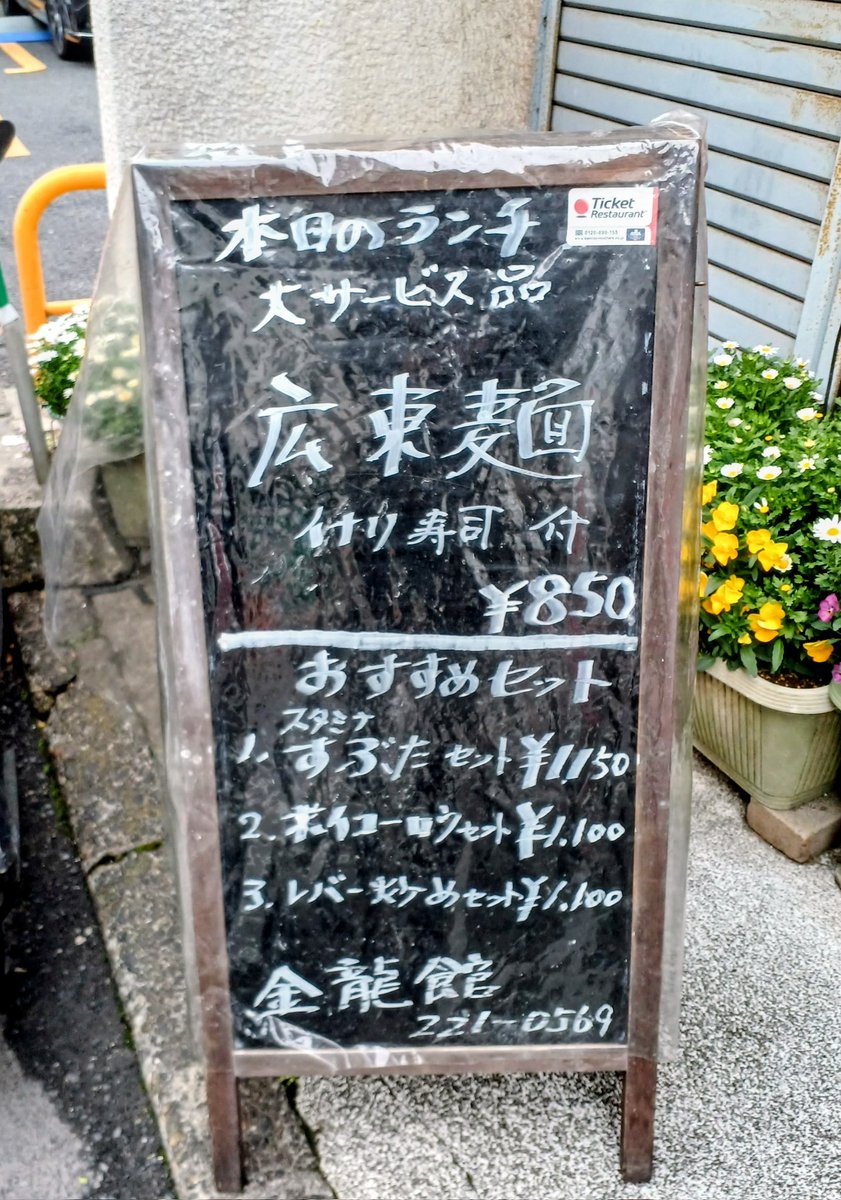 本日のランチ
Ticket
Restaurant
0120-690-155
大サービス品
広東麺
イナリ寿司付
¥850
おすすめセット
スタミナ
1. すぶたセット¥1150
2. ホイコーロウセット¥1.100
3. レバー炒めセット¥1.100
金龍館
221-0569